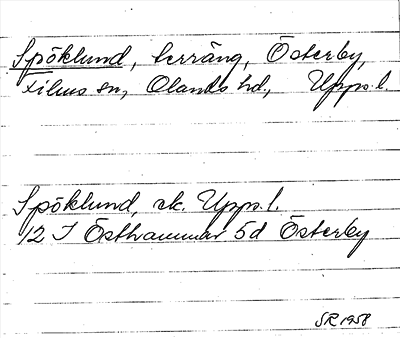 Spöklund, terräng, Österby,
Films sn, Olands hd, Upps. l.
Spöklund, ek. Upps. l.
12 I Östhammar 5d Österby
SR 1958